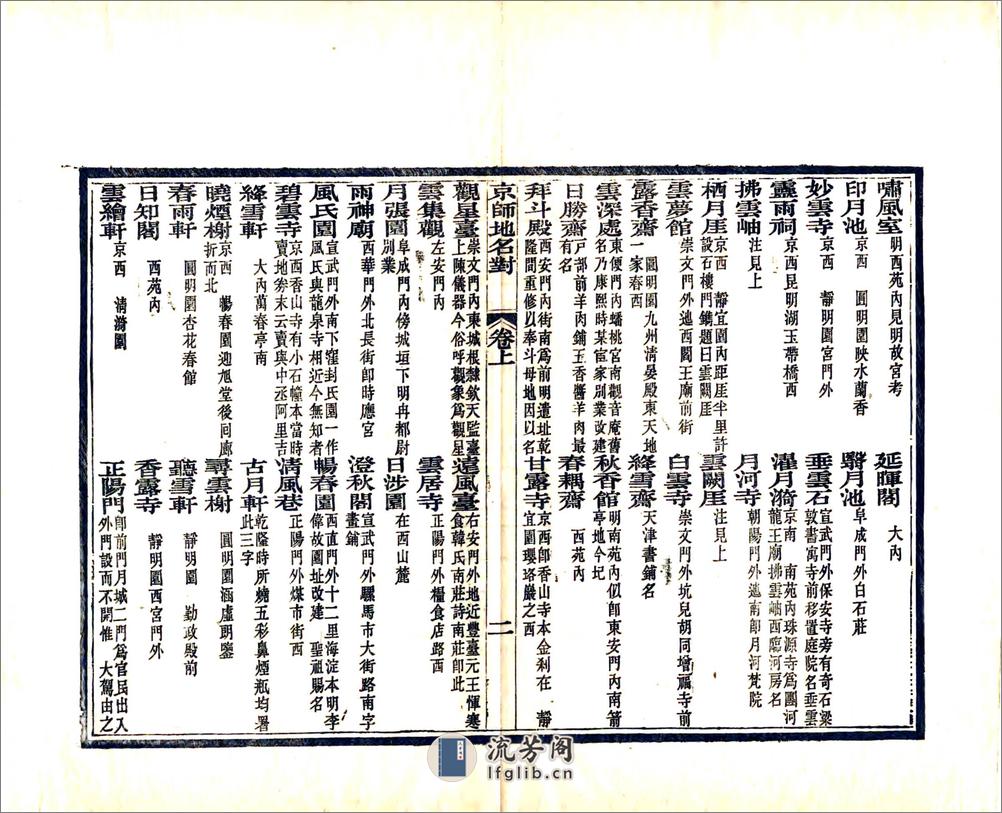 嘯風室 明西苑內見明故宮考 延暉閣 大內
印月池 京西 圓明園映水蘭香 翳月池 阜成門外白石莊
妙雲寺 京西 靜明園宮門外 垂雲石 宣武門外保安寺旁有奇石梁敦書寓寺前移置庭院名垂雲
靈雨祠 京西昆明湖玉帶橋西 濯月漪 京南 南苑內珠源寺爲團河龍王廟拂雲岫西臨河房名
拂雲岫 注見上 月河寺 朝陽門外迤南卽月河梵院
栖月厓 京西 靜宜園內距厓半里許設石樓門鐫題曰雲闕厓 雲闕厓 注見上
雲夢館 崇文門外迤西閻王廟前街 白雲寺 崇文門外坑兒胡同增福寺前
露香齋 圓明園九州清晏殿東天地一家春西 絳雪齋 天津書鋪名
雲深處 東便門內蟠桃宮南觀音庵舊名乃康熙時某宦家別業改建 秋香館 明南苑內似卽東安門內南箭亭地今圮
日勝齋 戶部前羊肉鋪玉香醬羊肉最有名 春耦齋 西苑內
拜斗殿 西安門內街南爲前明遺址乾隆間重修以奉斗母地因以名 甘露寺 京西卽香山寺本金刹在 靜宜園瓔珞巖之西
京師地名對 卷上 二
觀星臺 崇文門內東城根隸欽天監臺上陳儀器今俗呼觀象爲觀星 遠風臺 右安門外地近豐臺元王惲寒食韓氏南莊詩南莊卽此
雲集觀 左安門內 雲居寺 正陽門外糧食店路西
月張園 阜成門內傍城垣下明冉都尉別業 日涉園 在西山麓
雨神廟 西華門外北長街卽時應宮 澄秋閣 宣武門外騾馬市大街路南字畫鋪
風氏園 宣武門外南下窪封氏園一作風氏與龍泉寺相近今無知者 暢春園 西直門外十二里海淀本明李偉故園址改建 聖祖賜名
碧雲寺 京西香山寺有小石幢本當時賣地劵末云賣與中丞阿里吉 清風巷 正陽門外煤市街西
絳雪軒 大內萬春亭南 古月軒 乾隆時所燒五彩鼻煙瓶均署此三字
曉煙榭 京西 暢春園迎旭堂後回廊折而北 尋雲榭 圓明園涵虛朗鑒
春雨軒 圓明園杏花春館 聽雪軒 靜明園 勤政殿前
日知閣 西苑內 香露寺 靜明園西宮門外
雲繪軒 京西 清漪園 正陽門 卽前門月城二門爲官民出入外門設而不開惟 大駕由之
流芳阁
lfglib.cn